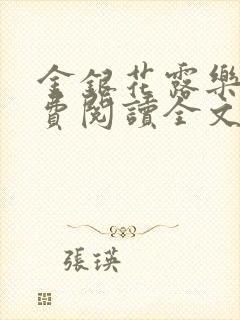 金銀花露樂
費閱讀全文
張瑛